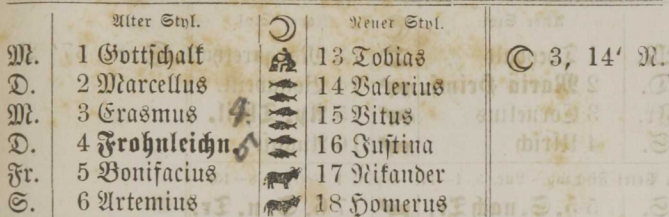 Alter Styl. Neuer Styl.
M. 1 Gottschalk 13 Tobias ☾ 3, 14' N.
D. 2 Marcellus 14 Valerius
M. 3 Erasmus 4. 15 Vitus
D. 4 Frohnleichn. 5 16 Justina
Fr. 5 Bonifacius 17 Nikander
S. 6 Artemius 18 Homerus